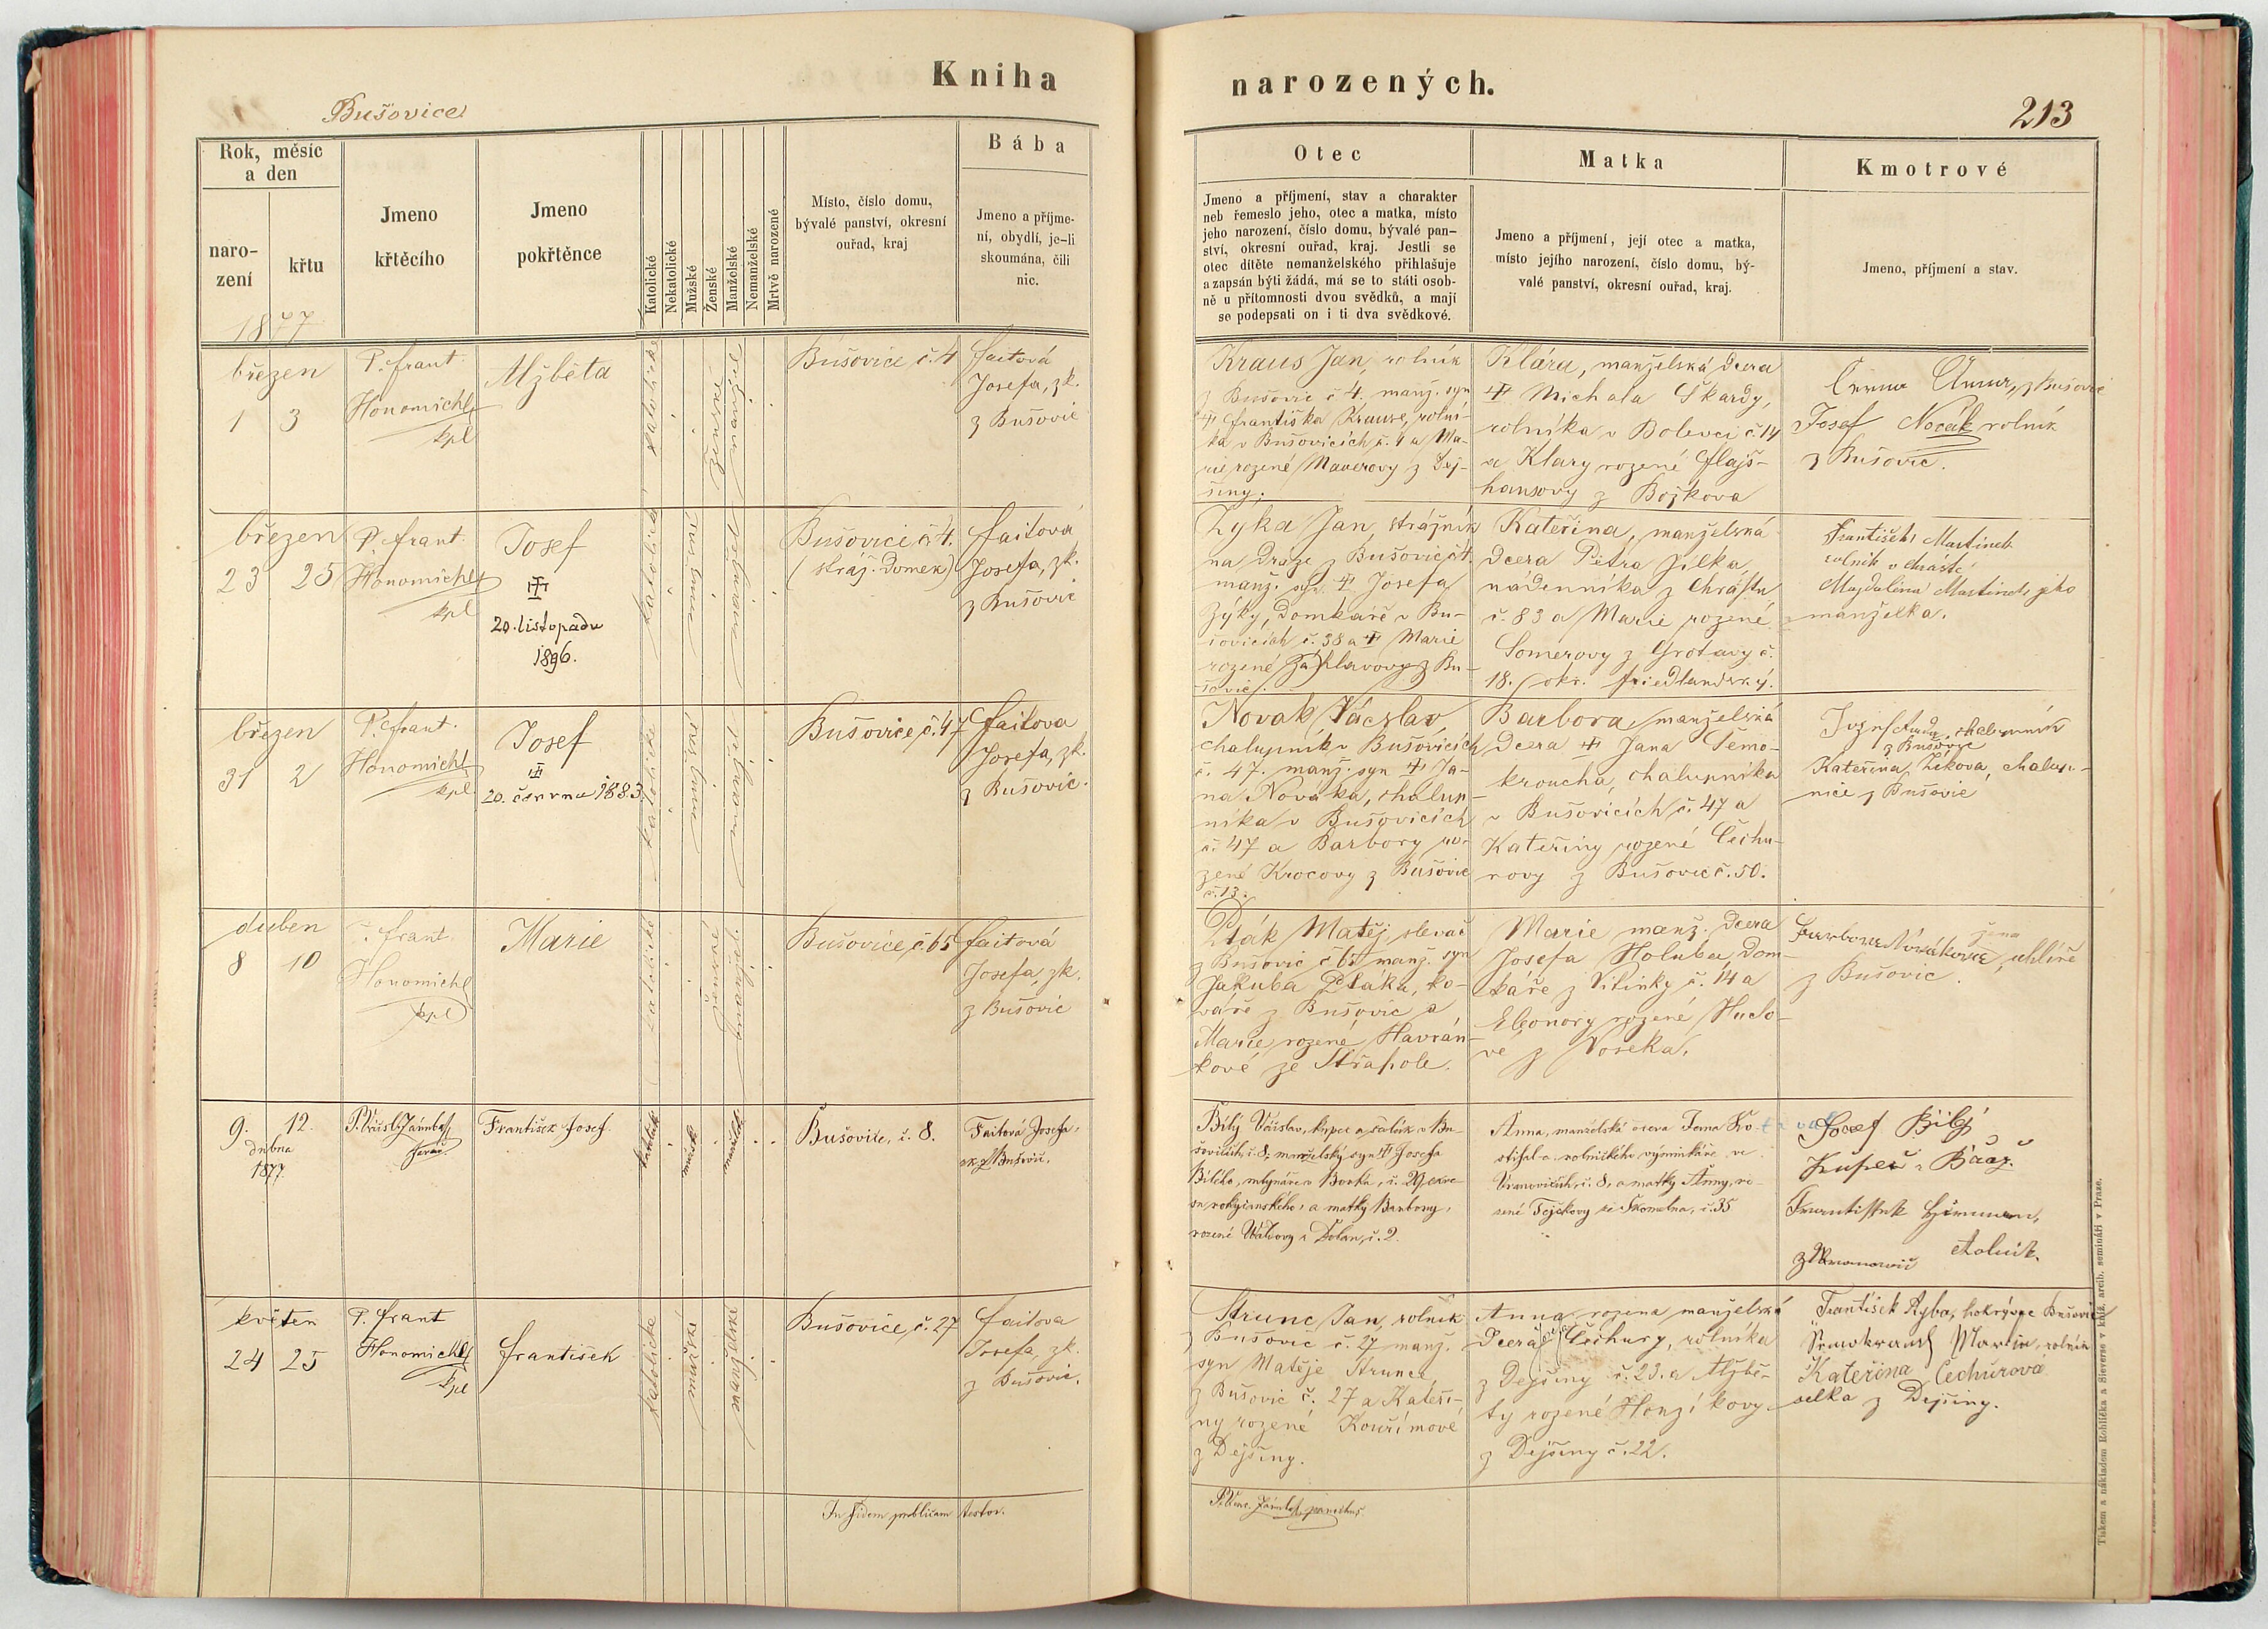 Kniha narozených.
Bušovice
213
Rok, měsíc
a den
naro-
zení
křtu
1877
Jmeno
křtěcího
Jmeno
pokřtěnce
Katolické
Nekatolické
Mužské
Ženské
Manželské
Nemanželské
Mrtvě narozené
Místo, číslo domu,
bývalé panství, okresní
ouřad, kraj
Bába
Jmeno a příjme-
ní, obydlí, je-li
skoumána, čili
nic.
Otec
Jmeno a příjmení, stav a charakter
neb řemeslo jeho, otec a matka, místo
jeho narození, číslo domu, bývalé pan-
ství, okresní ouřad, kraj. Jestli se
otec dítěte nemanželského přihlašuje
a zapsán býti žádá, má se to státi osob-
ně u přítomnosti dvou svědků, a mají
se podepsati on i ti dva svědkové.
Matka
Jmeno a příjmení, její otec a matka,
místo jejího narození, číslo domu, bý-
valé panství, okresní ouřad, kraj.
Kmotrové
Jmeno, příjmení a stav.
březen
1 3
P. Frant.
Honomichl
kpl
Alžběta
katolické
ženské
manžel
Bušovice č. 4
Faitová
Josefa, zk.
z Bušovic
Kraus Jan, rolník
z Bušovic č 4. manž. syn
Františka Krause, rolní-
ka v Bušovicích č. 4 a Ma-
rie rozené Mauerovy z Dej-
šiny.
Klára, manželská dcera
Michala Škardy,
rolníka v Bolevci č. 14
a Klary rozené Flajš-
hansovy z Božkova
z Bušovic
Josef Novák rolník
z Bušovic.
březen
23 25
P. Frant.
Honomichl
kpl
Josef
20. listopadu
1896.
katolické
mužské
manžel
Bušovice č 4.
(stráž. domek)
Faitová
Josefa, zk.
z Bušovic
Zyka Jan, strážník
na dráze z Bušovic č 4.
manž. syn Josefa
Zyky, domkáře v Bu-
šovicích č. 38 a Marie
rozené z Bu-
šovic.
Kateřina, manželská
dcera Petra Jílka,
nádenníka z Chrástu
č. 83 a Marie rozené
Somerovy z Grotavy č.
18. okr. friedlandský.
František Martinek
rolník v Chrástě
Magdalena Martinek jeho
manželka.
březen
31 2
P. Frant.
Honomichl
kpl
Josef
20. června 1883.
katolické
mužské
manžel
Bušovice, č. 47
Faitova
Josefa, zk.
z Bušovic.
Novak Václav,
chalupník v Bušovicích
č. 47. manž. syn Ja-
na Nováka, chalup-
níka v Bušovicích
č. 47 a Barbory ro-
zené Krocovy z Bušovic
č. 13.
Barbora, manželská
dcera Jana Černo-
kroucha, chalupníka
v Bušovicích č. 47 a
Kateřiny rozené Čechu-
rovy z Bušovic č. 50.
Josef chalupník
z Bušovic
Kateřina, chalup-
nice z Bušovic
duben
8 10
P. frant.
Honomichl
kpl
Marie
katolické
ženské
manžel
Bušovice, č. 65
Faitová
Josefa, zk.
z Bušovic
Pták Matěj, slevač
z Bušovic č 65 manž. syn
Jakuba Ptáka, ko-
váře z Bušovic a
Marie rozené Havrán-
kové ze Střapole.
Marie manž. dcera
Josefa Holuba, dom-
káře z Vitinky č. 14 a
Eleonory rozené Hudo-
vé z Voseka.
žena
Barbora Nováková, uhlíře
z Bušovic.
9. 12.
dubna
1877
František Josef
katolick
mužsk
manžels
Bušovice, č. 8.
Faitová Josefa,
zk. z Bušovic.
Bílý Václav, kupec a rolník v Bu-
šovicích, č. 8, manželský syn Josefa
Bílého, mlynáře v Borku, č. 29, okre-
su rokycanského, a matky Barbory,
rozené z Dolan, č. 2.
Anna, manželská dcera Jana Ko-
rolnického výminkáře ve
Vranovicích, č. 8, a matky Anny, ro-
zené Fejkovy ze Skomelna, č. 35
Josef Bílý
Kupec
František
z Vranovic rolník.
květen
24 25
P. frant
Honomichl
kpl
František
katolické
mužské
manželské
Bušovice, č. 27
Faitova
Josefa, zk.
z Bušovic.
Strunc Jan, rolník
z Bušovic č. 27 manž.
syn Matěje Strunce
z Bušovic č. 27 a Kateři-
ny rozené Kouřímové
z Dejšiny.
Anna, rozena manželská
dcera Čechury, rolníka
z Dejšiny č. 23. a Alžbě-
ty rozené Honzíkovy
z Dejšiny č. 22.
František Ryba, pokrývač Bušovic
Martin, rolník
Kateřina Čechurova
selka z Dejšiny.
In fidem publicam testor.
parochus
Tiskem a nákladem Rohlíčka a Sieverse v kníž. arcib. semináři v Praze.